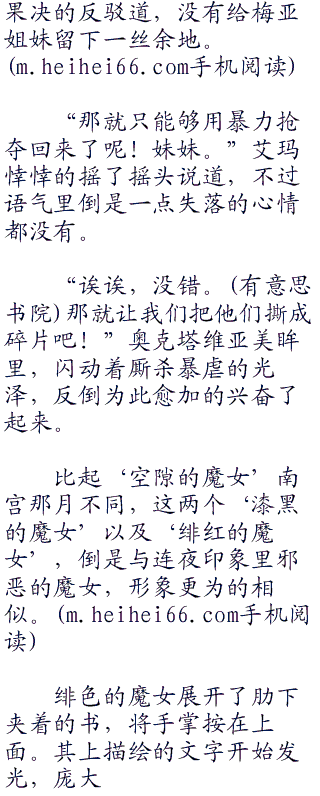 果决的反驳道，没有给梅亚
姐妹留下一丝余地。
(m.heihei66.com手机阅读)
“那就只能够用暴力抢
夺回来了呢！妹妹。”艾玛
悻悻的摇了摇头说道，不过
语气里倒是一点失落的心情
都没有。
“诶诶，没错。(有意思
书院)那就让我们把他们撕成
碎片吧！”奥克塔维亚美眸
里，闪动着厮杀暴虐的光
泽，反倒为此愈加的兴奋了
起来。
比起‘空隙的魔女’南
宫那月不同，这两个‘漆黑
的魔女’以及‘绯红的魔
女’，倒是与连夜印象里邪
恶的魔女，形象更为的相
似。(m.heihei66.com手机阅
读)
绯色的魔女展开了肋下
夹着的书，将手掌按在上
面。其上描绘的文字开始发
光，庞大